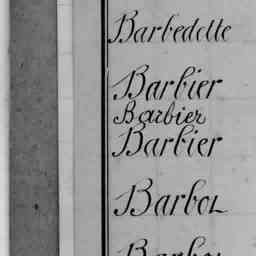 Barbedette
Barbier
Barbier
Barbier
Barbot